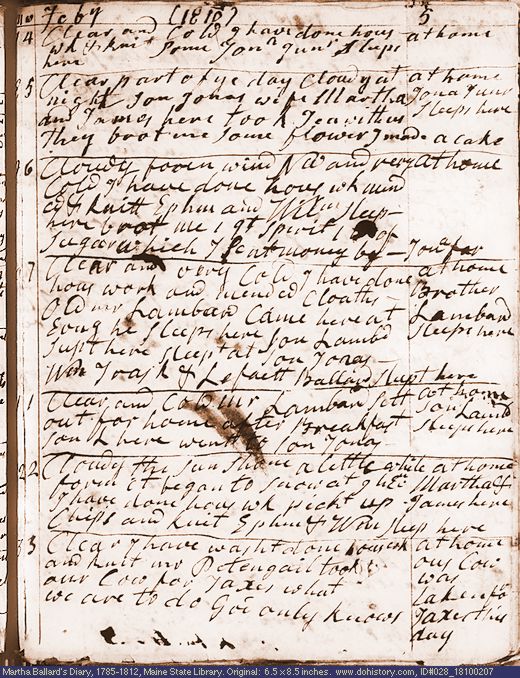 Feby (1810) 5
4 Clear and Cold I have done hous at home
wk & knit Some Jona Junr Sleeps
here
5 Clear part of ye day Cloudy at at home
night Son Jonas wife Martha Jona Junr
and James here took Tea with us Sleeps here
they brot me Some flower I made a cake
6 Cloudy foren wind NW and very at home
Cold I have done hous wk mend
ed & knitt Ephm and Wm Sleep
here brot me 1 qt Spirit 1 lb of
Sugar which I Sent money by Jona for
7 Clear and very Cold I have done at home
hous work and mended Cloaths Brother
Old mr Lambard Came here at Lambard
Even he Sleeps here Son Lambd Sleeps here
Supt here Sleept at Son Jonas
Wm & Lafaett Ballard Slept here
1 Clear and Cold mr Lambard Sett at home
out for home after Breakfast Son Lambd
Son L here went to Son Jonas Sleeps here
2 Cloudy the Sun Shone a little while at home
foren it began to Snow at Martha &
I have done hous wk pickt up James here
Chips and knit Ephm & Wm Sleep here
3 Clear I have washt done houswk at home
and knit mr Petengail took our Cow
our Cow for Taxes what was
we are to do God only knows taken for
Taxes this
day
Martha Ballard's Diary, 1785-1812, Maine State Library. Original: 6.5 x 8.5 inches. www.dohistory.com, ID#028_18100207